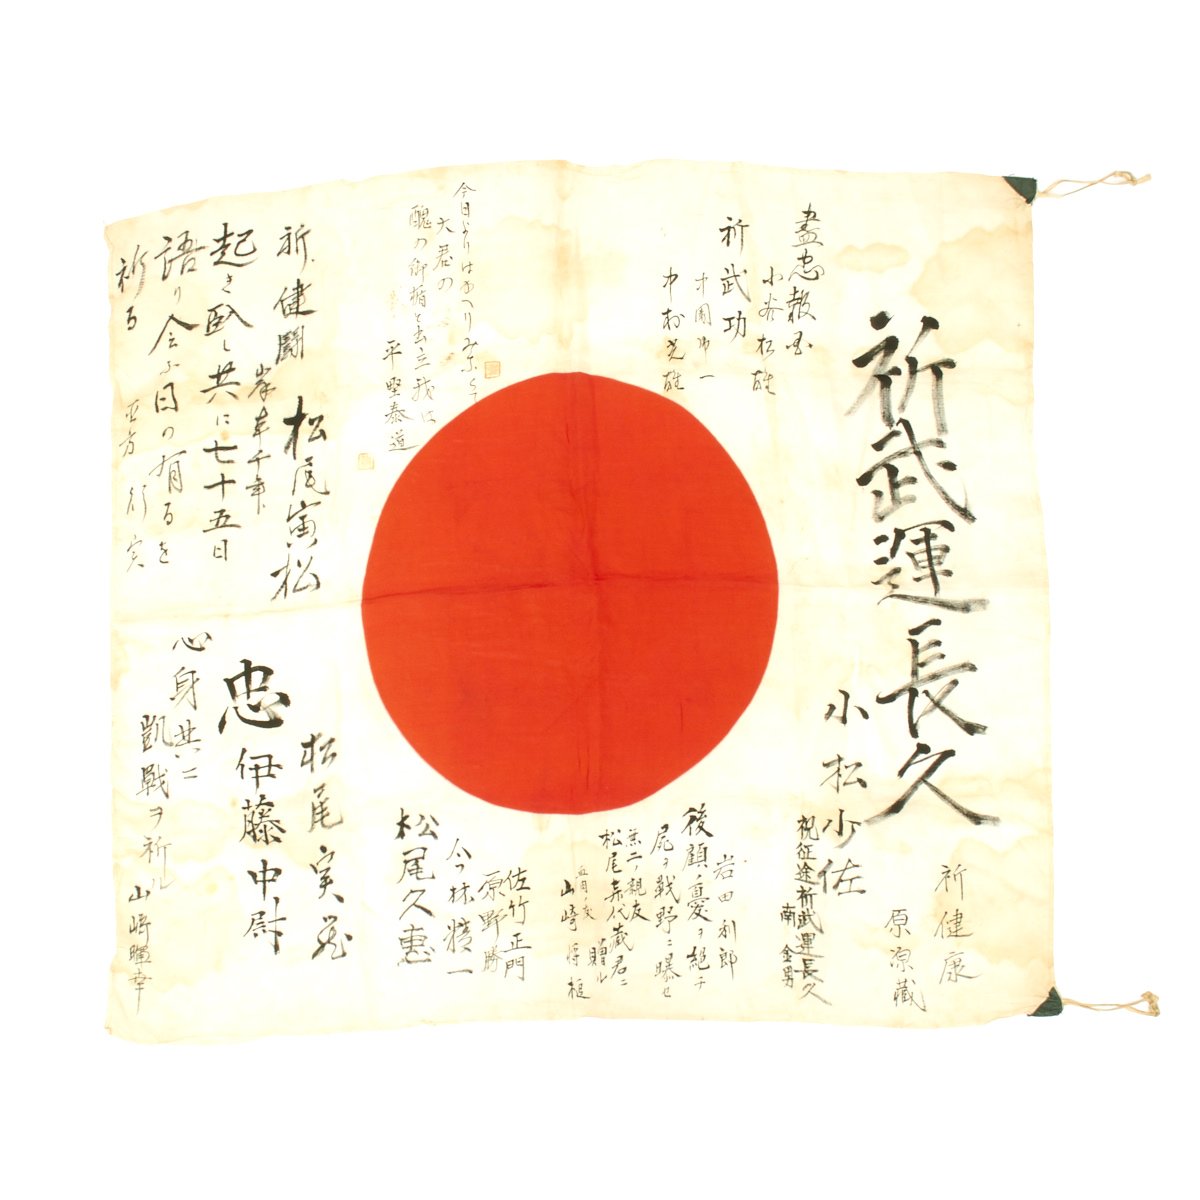 祈武運長久
小松少佐
祈健康
原源藏
祝征途祈武運長久
南金男
盡忠報国
小谷松雄
祈武功
中園御一
中村光雄
岩田利郎
後顧ノ憂ヲ絶チ
屍ヲ戦野ニ曝セ
無二ノ親友
松尾寿代蔵君ニ
贈ル
山崎将
今日よりはかへりみなくて
大君の
醜の御楯と出立我は
平堅泰道
佐竹正門
原野勝
松尾久恵
祈健闘
松尾寅松
起き臥し共に七十五日
語り会ふ日の有るを
祈る
松尾実
忠
伊藤中尉
心身共ニ
凱戦ヲ祈ル
山崎暉幸